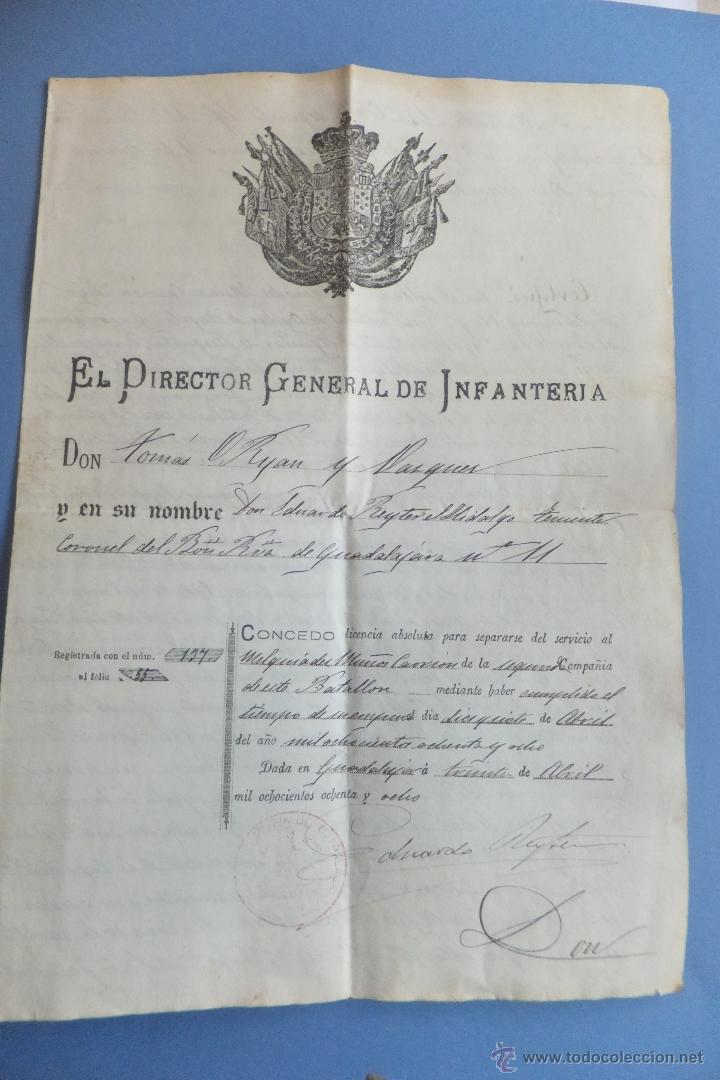 EL DIRECTOR GENERAL DE INFANTERIA
DON Tomás O Ryan y Vazquez
y en su nombre Don Eduardo Reyter el Hidalgo teniente
Coronel del Bón Rva de Guadalajara nº 11
Registrada con el núm. 137
al folio 35
CONCEDO licencia absoluta para separarse del servicio al
Melquiades Muñoz Carrion de la segunda Compañia
de este Batallon mediante haber cumplido el
tiempo de su empeño el dia diez y siete de Abril
del año mil ochocientos ochenta y ocho
Dada en Guadalajara á treinta de Abril
mil ochocientos ochenta y ocho
Eduardo Reyter
Don
www.todocoleccion.net